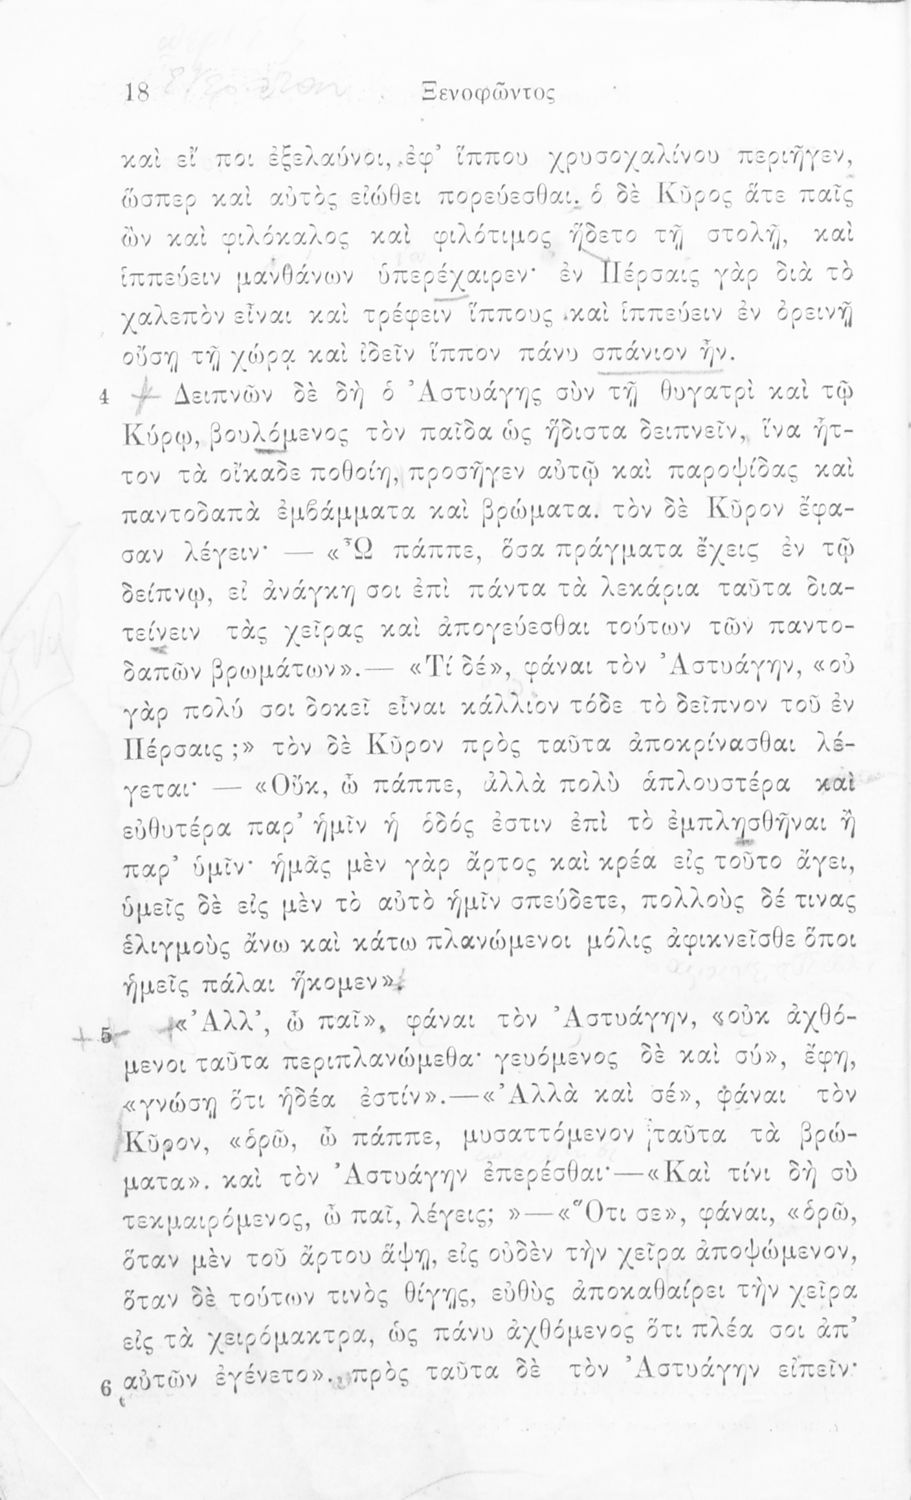 18 Ξενοφῶντος
καὶ εἴ ποι ἐξελαύνοι, ἐφ’ ἵππου χρυσοχαλίνου περιῆγεν,
ὥσπερ καὶ αὐτὸς εἰώθει πορεύεσθαι. ὁ δὲ Κῦρος ἅτε παῖς
ὢν καὶ φιλόκαλος καὶ φιλότιμος ἥδετο τῇ στολῇ, καὶ
ἱππεύειν μανθάνων ὑπερέχαιρεν· ἐν Πέρσαις γὰρ διὰ τὸ
χαλεπὸν εἶναι καὶ τρέφειν ἵππους καὶ ἱππεύειν ἐν ὀρεινῇ
οὔσῃ τῇ χώρᾳ καὶ ἰδεῖν ἵππον πάνυ σπάνιον ἦν.
4 Δειπνῶν δὲ δὴ ὁ Ἀστυάγης σὺν τῇ θυγατρὶ καὶ τῷ
Κύρῳ, βουλόμενος τὸν παῖδα ὡς ἥδιστα δειπνεῖν, ἵνα ἧτ-
τον τὰ οἴκαδε ποθοίη, προσῆγεν αὐτῷ καὶ παροψίδας καὶ
παντοδαπὰ ἐμβάμματα καὶ βρώματα. τὸν δὲ Κῦρον ἔφα-
σαν λέγειν· — «Ὦ πάππε, ὅσα πράγματα ἔχεις ἐν τῷ
δείπνῳ, εἰ ἀνάγκη σοι ἐπὶ πάντα τὰ λεκάρια ταῦτα δια-
τείνειν τὰς χεῖρας καὶ ἀπογεύεσθαι τούτων τῶν παντο-
δαπῶν βρωμάτων».— «Τί δέ», φάναι τὸν Ἀστυάγην, «οὐ
γὰρ πολύ σοι δοκεῖ εἶναι κάλλιον τόδε τὸ δεῖπνον τοῦ ἐν
Πέρσαις ;» τὸν δὲ Κῦρον πρὸς ταῦτα ἀποκρίνασθαι λέ-
γεται· — «Οὔκ, ὦ πάππε, ἀλλὰ πολὺ ἁπλουστέρα καὶ
εὐθυτέρα παρ’ ἡμῖν ἡ ὁδός ἐστιν ἐπὶ τὸ ἐμπλησθῆναι ἢ
παρ’ ὑμῖν· ἡμᾶς μὲν γὰρ ἄρτος καὶ κρέα εἰς τοῦτο ἄγει,
ὑμεῖς δὲ εἰς μὲν τὸ αὐτὸ ἡμῖν σπεύδετε, πολλοὺς δέ τινας
ἑλιγμοὺς ἄνω καὶ κάτω πλανώμενοι μόλις ἀφικνεῖσθε ὅποι
ἡμεῖς πάλαι ἥκομεν».
5 «Ἀλλ’, ὦ παῖ», φάναι τὸν Ἀστυάγην, «οὐκ ἀχθό-
μενοι ταῦτα περιπλανώμεθα· γευόμενος δὲ καὶ σύ», ἔφη,
«γνώσῃ ὅτι ἡδέα ἐστίν».—«Ἀλλὰ καὶ σέ», φάναι τὸν
Κῦρον, «ὁρῶ, ὦ πάππε, μυσαττόμενον ταῦτα τὰ βρώ-
ματα». καὶ τὸν Ἀστυάγην ἐπερέσθαι·—«Καὶ τίνι δὴ σὺ
τεκμαιρόμενος, ὦ παῖ, λέγεις; »—«Ὅτι σε», φάναι, «ὁρῶ,
ὅταν μὲν τοῦ ἄρτου ἅψῃ, εἰς οὐδὲν τὴν χεῖρα ἀποψώμενον,
ὅταν δὲ τούτων τινὸς θίγῃς, εὐθὺς ἀποκαθαίρει τὴν χεῖρα
εἰς τὰ χειρόμακτρα, ὡς πάνυ ἀχθόμενος ὅτι πλέα σοι ἀπ’
6 αὐτῶν ἐγένετο». πρὸς ταῦτα δὲ τὸν Ἀστυάγην εἰπεῖν·